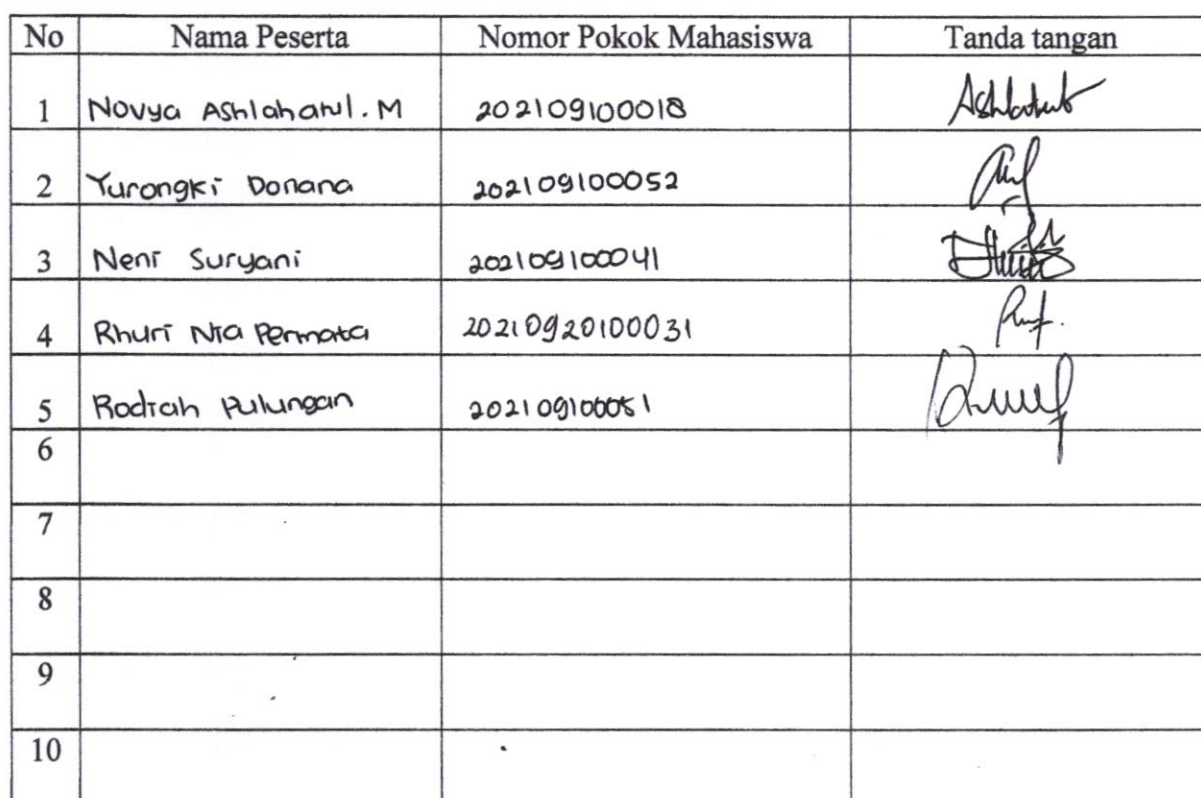 No Nama Peserta Nomor Pokok Mahasiswa Tanda tangan
1 Novya Ashlahatul. M 202109100018 Ashlahatul
2 Yurongki Donana 202109100052
3 Neni Suryani 202109100041
4 Rhuri Nia Permata 20210920100031
5 Rodiah Pulungan 202109100051
6
7
8
9
10